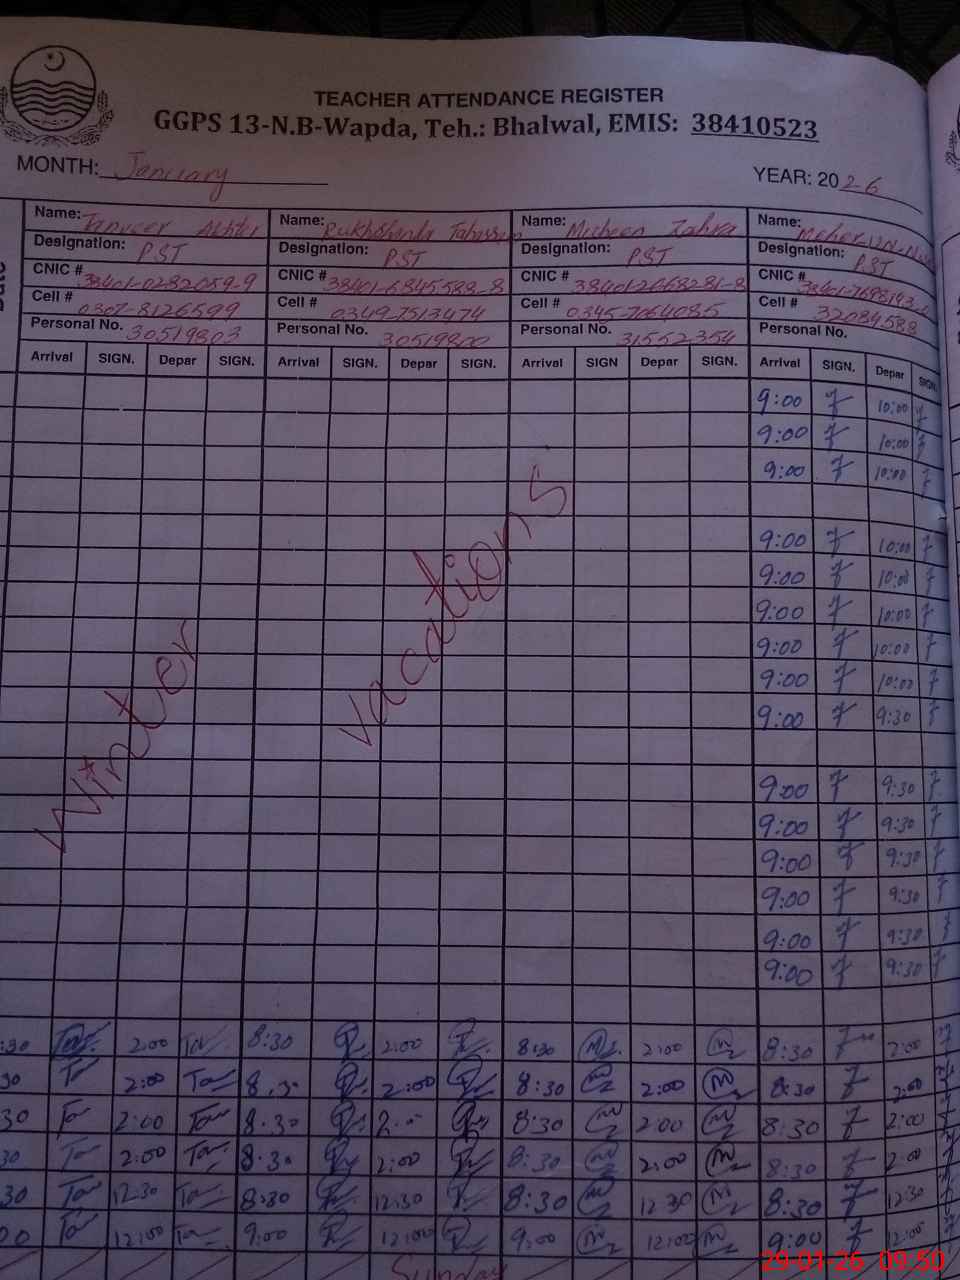 TEACHER ATTENDANCE REGISTER
GGPS 13-N.B-Wapda, Teh.: Bhalwal, EMIS: 38410523
MONTH: January YEAR: 2026
Name: Tanveer Akhter Name: Rukhshanda Tabassum Name: Misheen Zahra Name:
Designation: PST Designation: PST Designation: PST Designation: PST
CNIC # 38401-0282059-9 CNIC # 38401-6845588-8 CNIC # 38401-2668281-8 CNIC #
Cell # 0307-8126599 Cell # 0349-7513474 Cell # 0345-7064085 Cell # 32084588
Personal No. 30519803 Personal No. 30519800 Personal No. 31552354 Personal No.
Arrival SIGN. Depar SIGN. Arrival SIGN. Depar SIGN. Arrival SIGN Depar SIGN. Arrival SIGN. Depar SIGN.
9:00 10:00
9:00 10:00
9:00 10:00
9:00 10:00
9:00 10:00
9:00 10:00
9:00 10:00
9:00 10:00
9:00 9:30
Winter Vacations
9:00 9:30
9:00 9:30
9:00 9:30
9:00 9:30
9:00 9:30
9:00 9:30
:30 2:00 8:30 2:00 8:30 2:00 8:30 2:00
30 2:00 8:30 2:00 8:30 2:00 8:30 2:00
30 2:00 8:30 8:30 2:00 8:30 2:00
30 2:00 8:30 2:00 8:30 2:00 8:30 2:00
30 12:30 8:30 12:30 8:30 12:30 8:30 12:30
00 12:00 9:00 12:00 9:00 12:00 9:00 12:00
Sunday
29-01-26 09:50